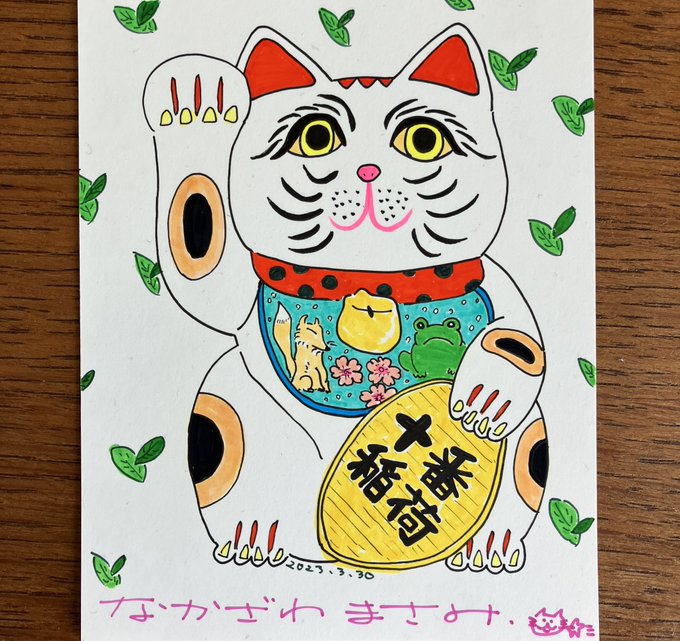 十番
稲荷
2023.3.30
なかざわ まさみ.